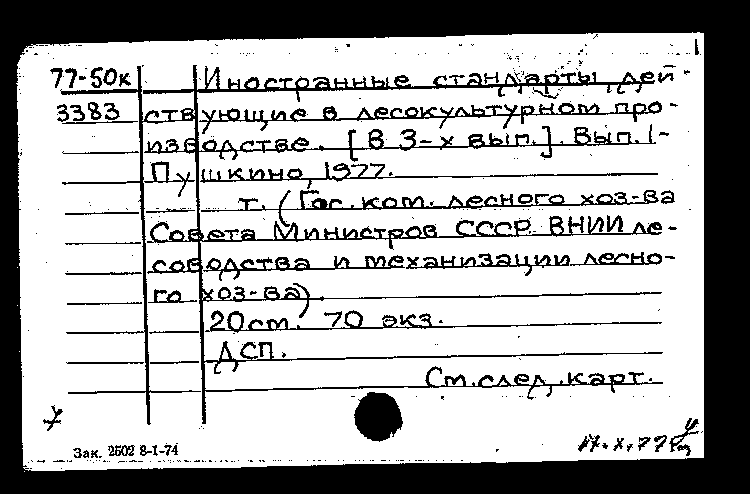 1
77-50к Иностранные стандарты, дей-
3383 ствующие в лесокультурном про-
изводстве. [В 3-х вып.]. Вып. 1-
Пушкино, 1977.
т. (Гос. ком. лесного хоз-ва
Совета Министров СССР. ВНИИ ле-
соводства и механизации лесно-
го хоз-ва).
20см. 70 экз.
ДСП.
См. след. карт.
Зак. 2502 8-1-74
17.X.77